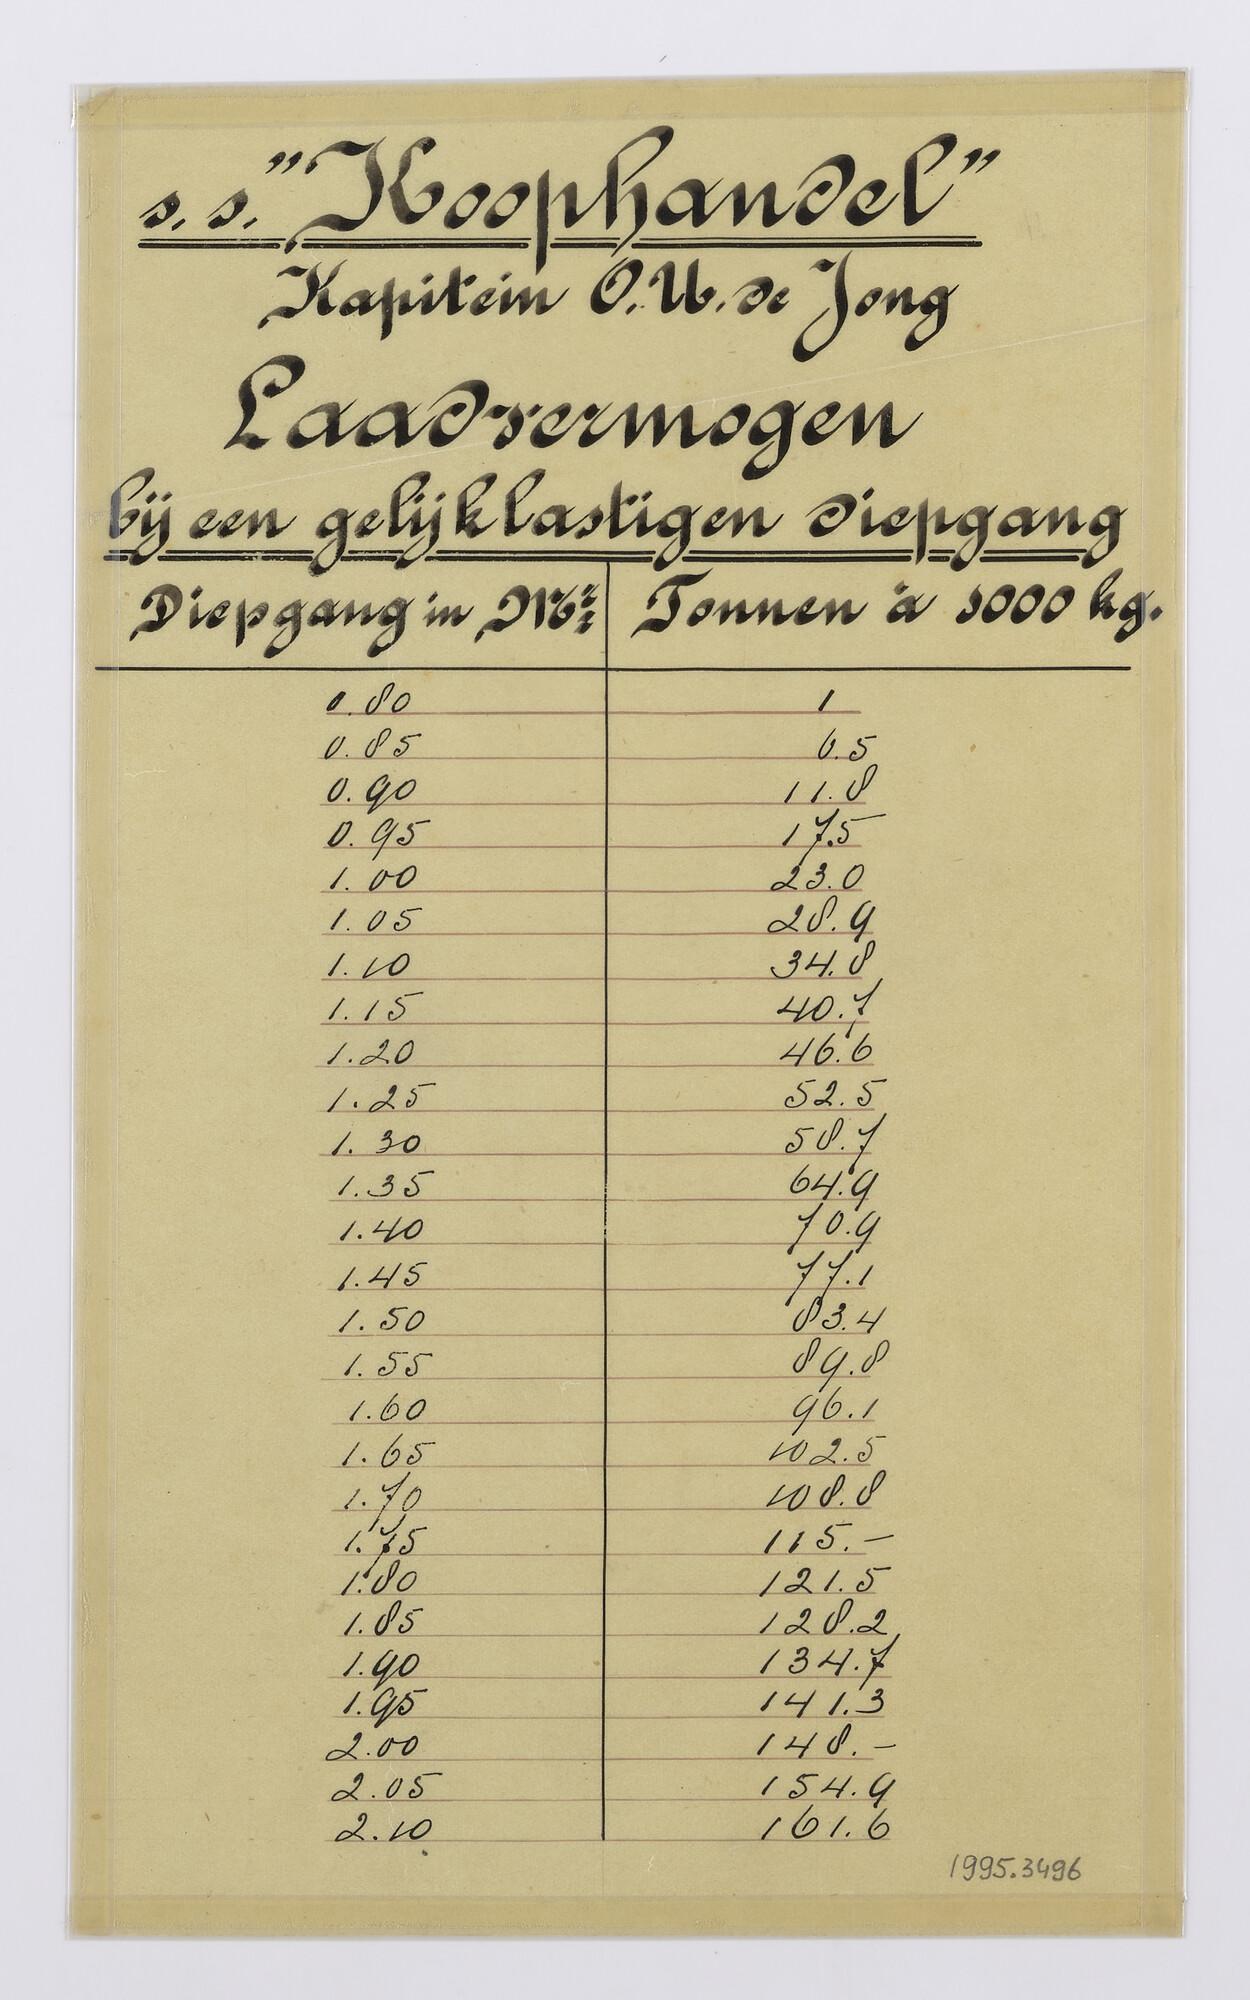 s.s. "Koophandel"
Kapitein O.W. de Jong
Laadvermogen
bij een gelijklastigen diepgang
Diepgang in Mr: Tonnen à 1000 kg.
0.80 1
0.85 6.5
0.90 11.8
0.95 17.5
1.00 23.0
1.05 28.9
1.10 34.8
1.15 40.7
1.20 46.6
1.25 52.5
1.30 58.7
1.35 64.9
1.40 70.9
1.45 77.1
1.50 83.4
1.55 89.8
1.60 96.1
1.65 102.5
1.70 108.8
1.75 115.-
1.80 121.5
1.85 128.2
1.90 134.7
1.95 141.3
2.00 148.-
2.05 154.9
2.10 161.6
1995.3496